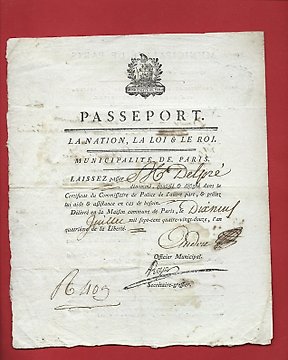 PASSEPORT.
LA NATION, LA LOI & LE ROI.
MUNICIPALITÉ DE PARIS.
LAISSEZ passer Mr Delpré
dénommé, qualifié & désigné dans le
Certificat du Commissaire de Police de l'autre part, & prêtez
lui aide & assistance en cas de besoin.
Délivré en la Maison commune de Paris, le Dixneuf
Juillet mil sept cent quatre-vingt-douze, l'an
quatrième de la Liberté.
Officier Municipal.
Secrétaire-greffier.